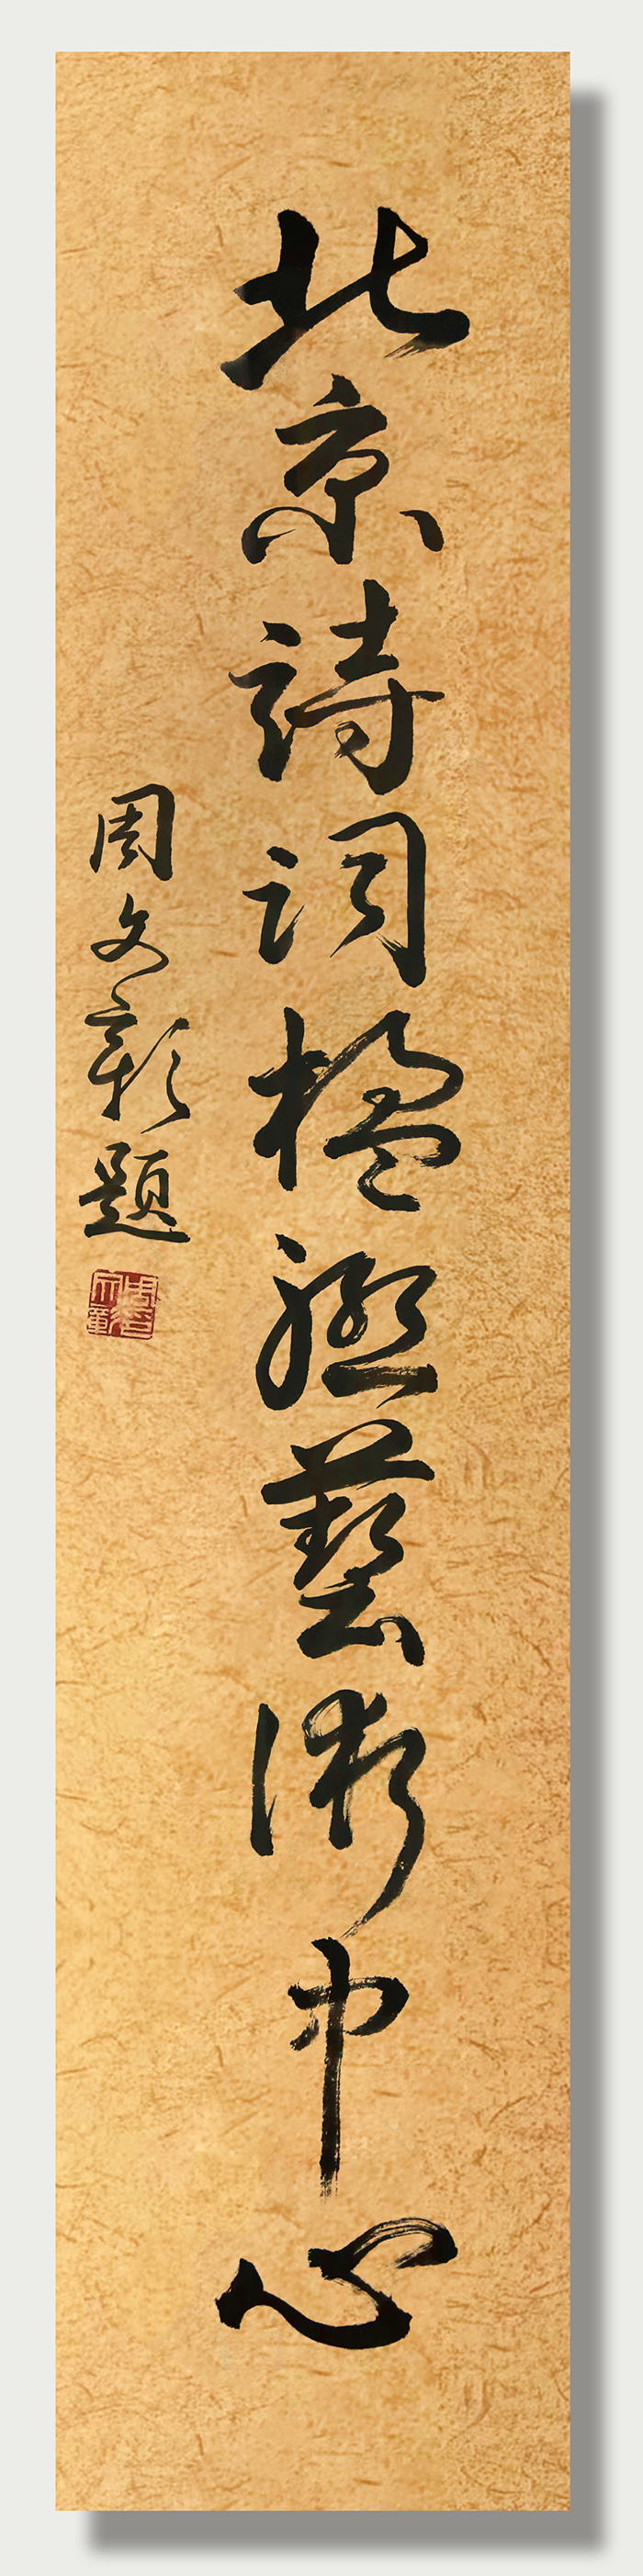 北京詩詞楹聯藝術中心
周文彰題